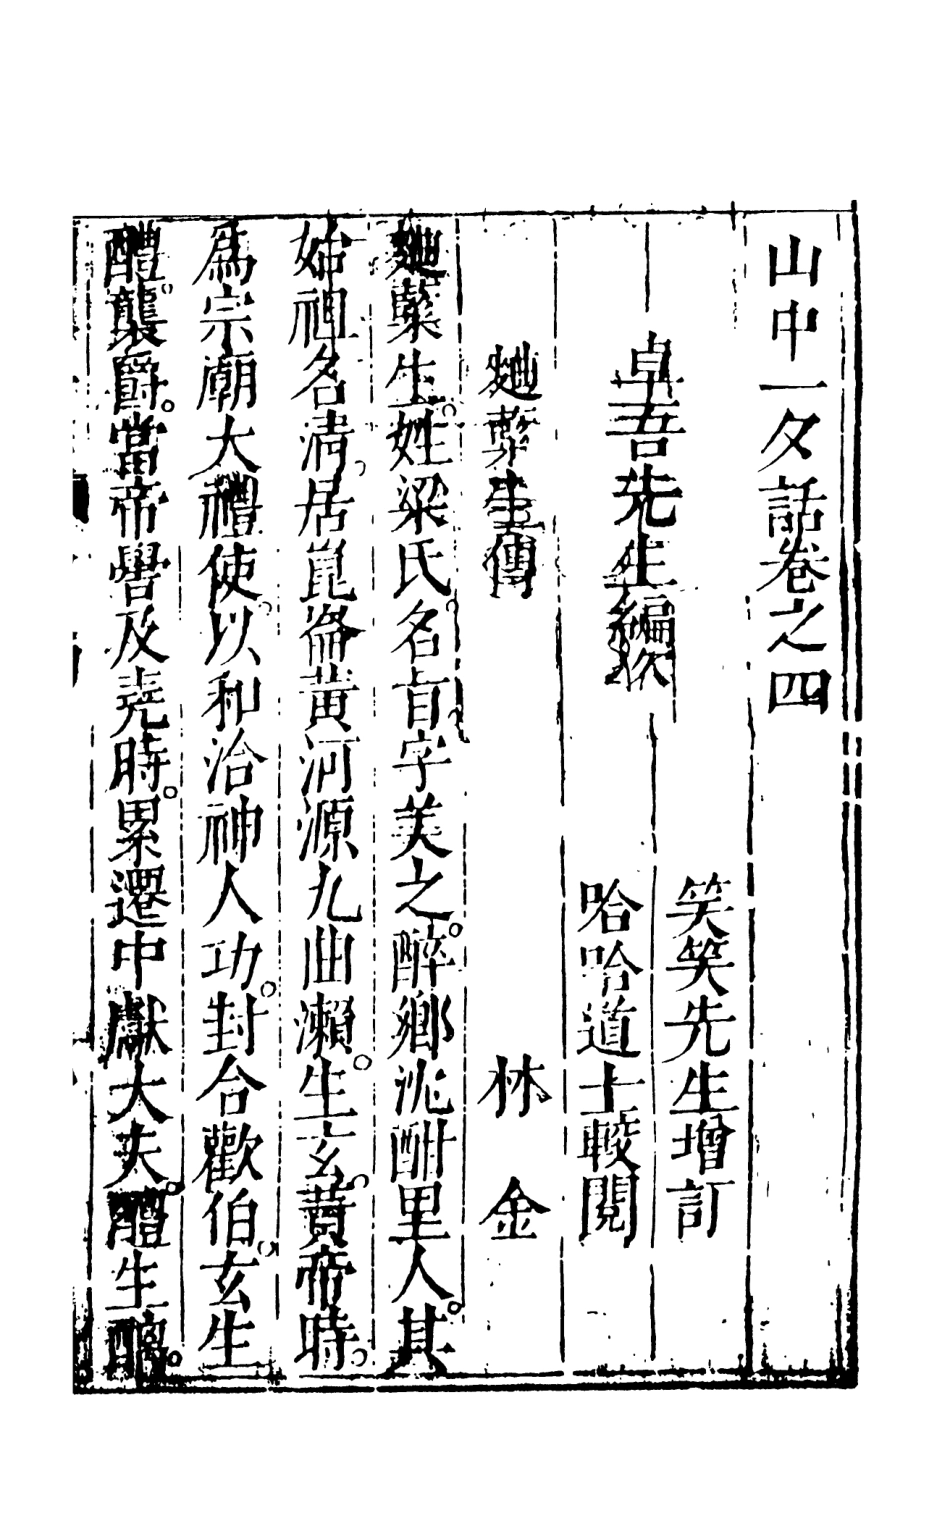 山中一夕話卷之四
卓吾先生編次
笑笑先生增訂
哈哈道士較閱
麯蘗生傳
林金
麯蘗生。姓梁氏。名旨。字美之。醉鄉沈酣里人。其
始祖名清。居崑崙黃河源九曲瀨。生玄。黃帝時。
爲宗廟大禮使。以和洽神人功。封合歡伯。玄生
醴。襲爵。當帝嚳及堯時。累遷中獻大夫。醴生醨。